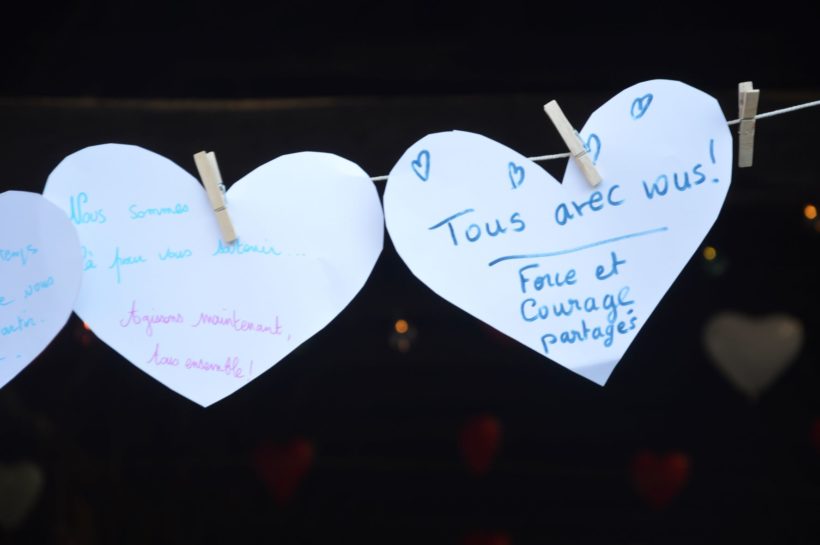 temps
nous
Nous sommes
là pour vous soutenir...
Agissons maintenant,
tous ensemble !
Tous avec vous !
Force et
Courage
partagés